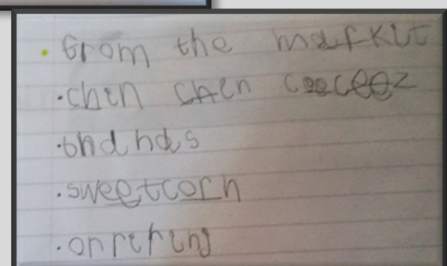 • from the markit
• chin chin cooceez
• bnd nds
• sweetcorn
• onriring